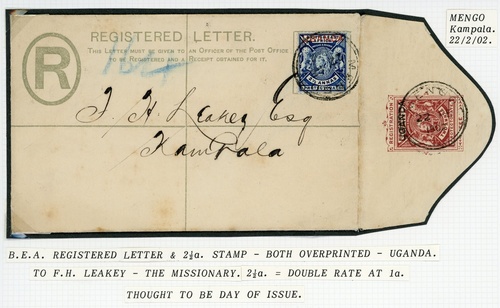 MENGO
Kampala.
22/2/02.
REGISTERED LETTER.
THIS LETTER MUST BE GIVEN TO AN OFFICER OF THE POST OFFICE
TO BE REGISTERED AND A RECEIPT OBTAINED FOR IT.
R
F. H. Leakey Esq
Kampala
UGANDA
REGISTRATION
B.E.A. REGISTERED LETTER & 2½a. STAMP - BOTH OVERPRINTED - UGANDA.
TO F.H. LEAKEY - THE MISSIONARY. 2½a. = DOUBLE RATE AT 1a.
THOUGHT TO BE DAY OF ISSUE.